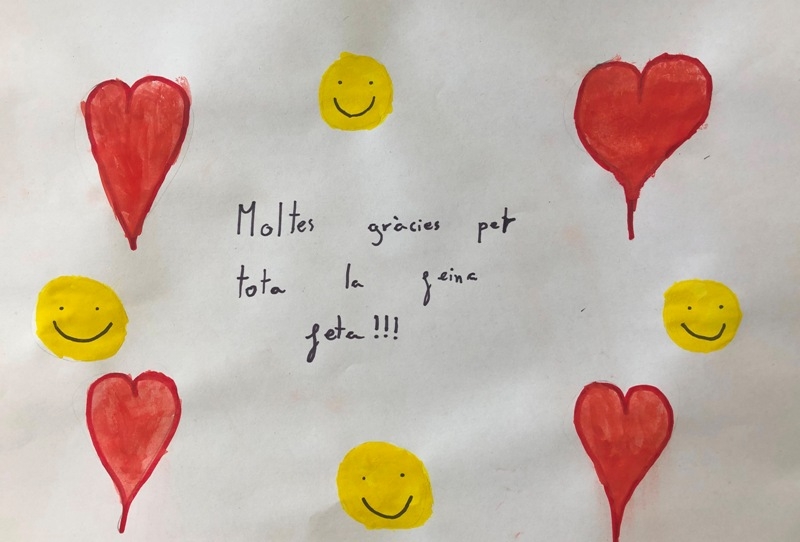 Moltes gràcies per
tota la feina
feta!!!